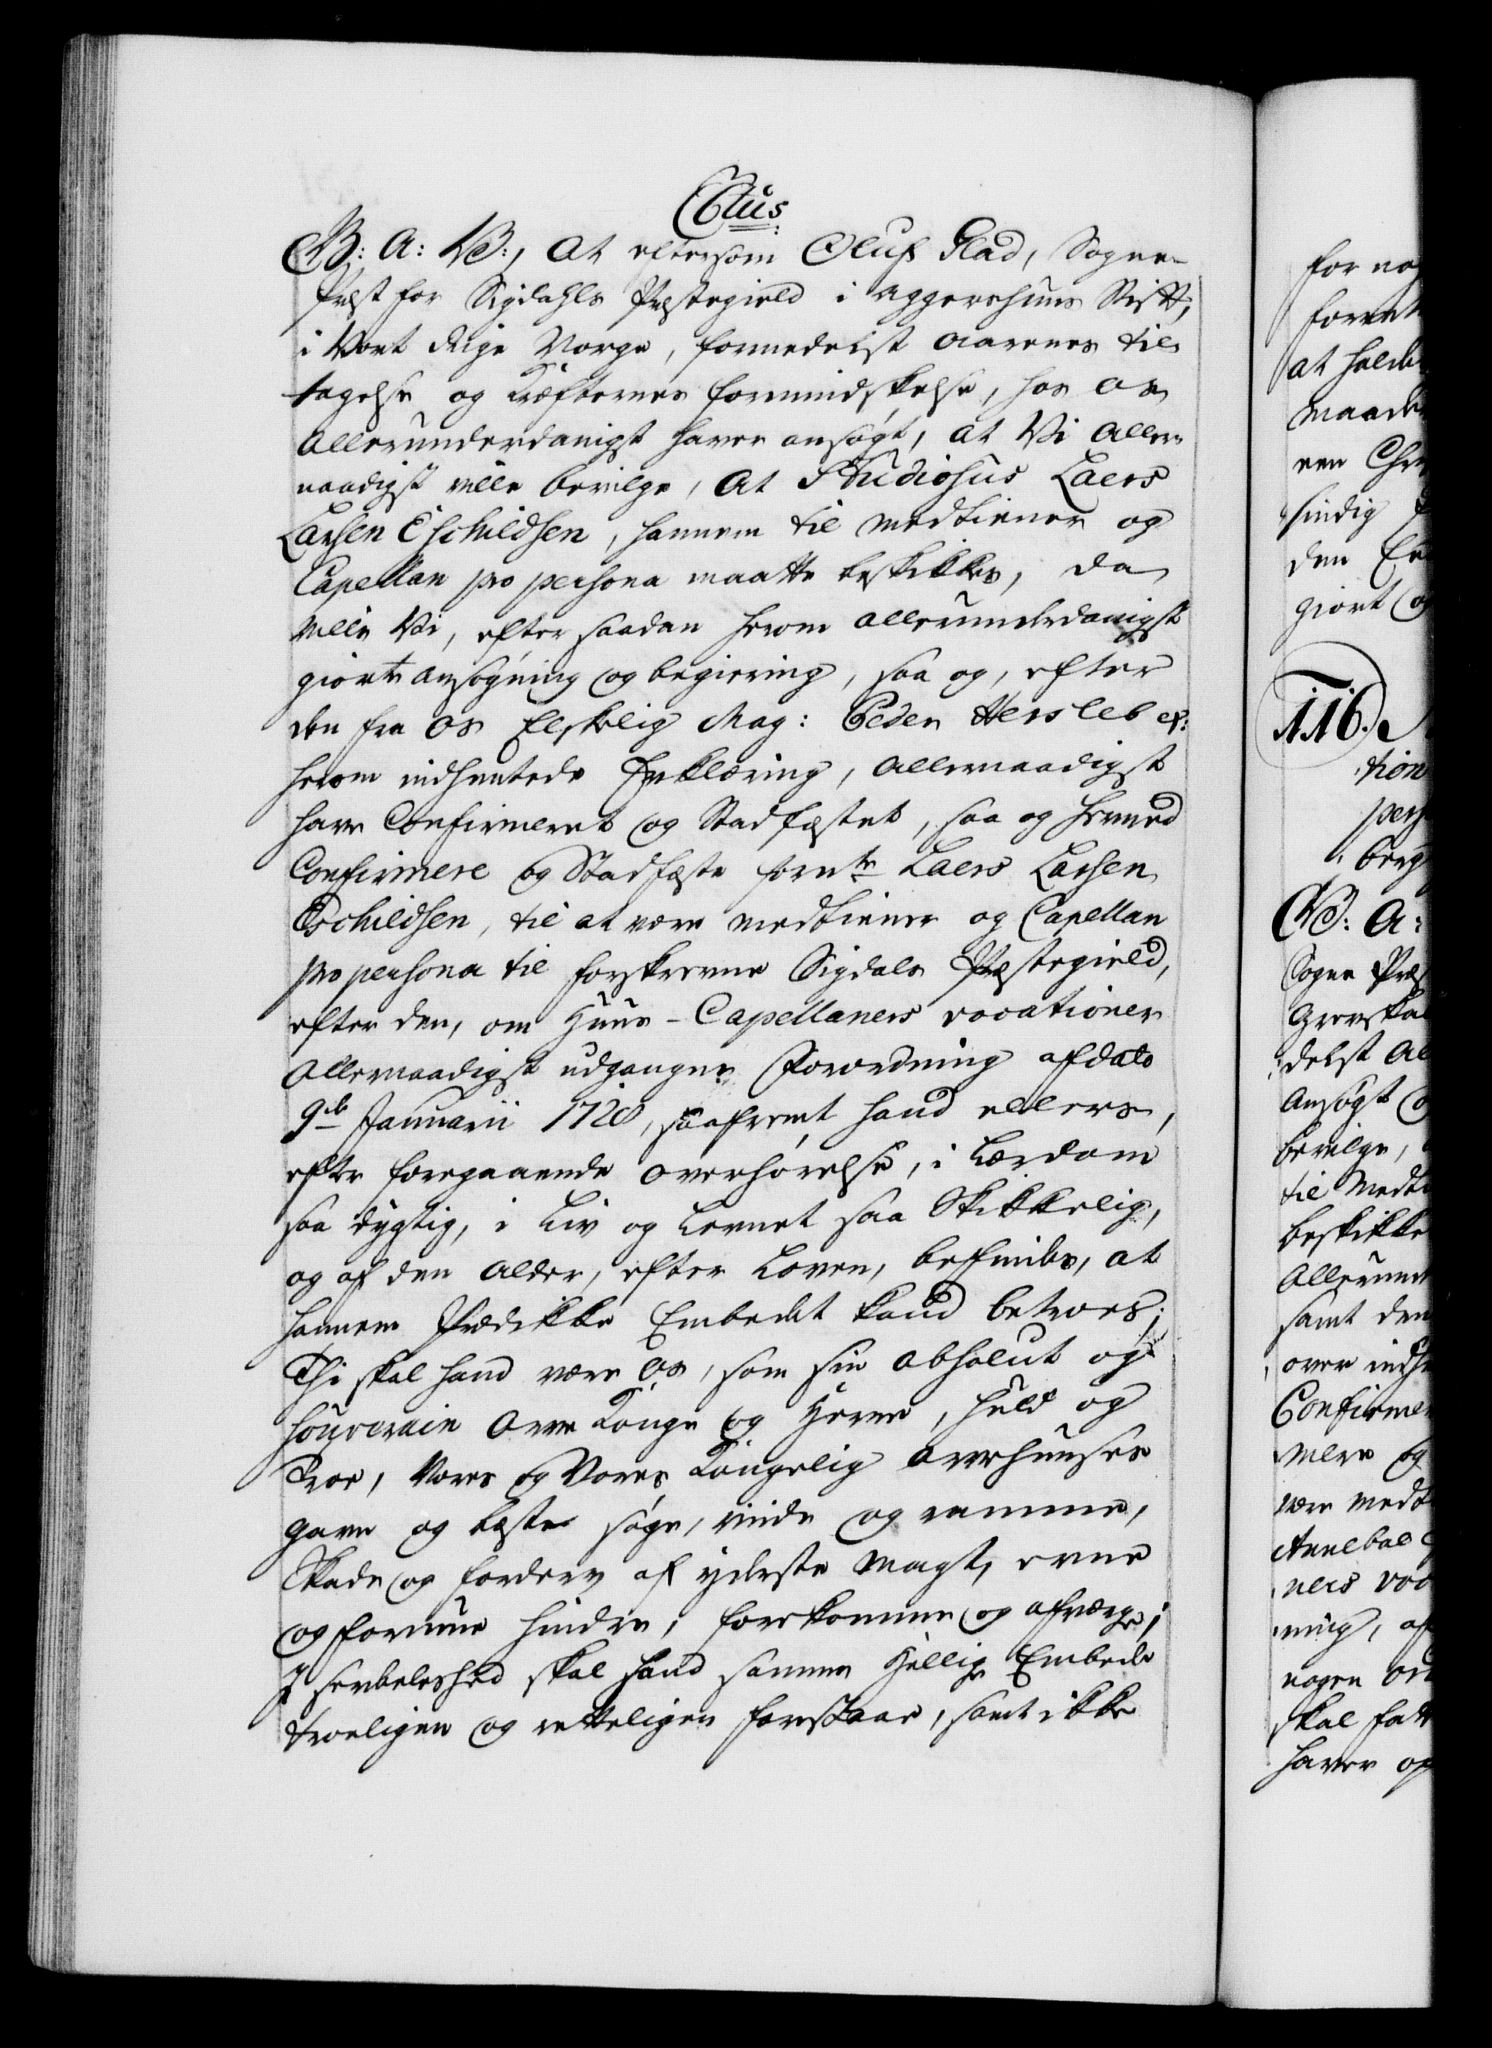 C6tus
G: A: V:, At eftersom Oluf Glad, Sogne-
Præst for Sigdahls Præstegield i Aggershuus Stift,
i Vort Rige Norge, formedelst Aarenes til-
tagelse og Kræfternes formindskelse, hos Os
Allerunderdanigst haver ansøgt, at Vi Aller-
naadigst ville bevilge, At Studiosus Laers
Larsen Eschildsen, hannem til Medtiener og
Capellan pro persona maatte beskikkes, da
Ville Vi, efter saadan herom allerunderdanigst
giorte Ansøgning og begiering, saa og, efter
den fra Os Elskelig Mag: Peder Hersleb &:
herom indhentede Erklæring, Allernaadigst
have Confirmeret og Stadfæstet, saa og hermed
Confirmere og Stadfæste fornte Laers Larsen
Eschildsen, til at være Medtiener og Capellan
pro persona til forskrevne Sigdals Præstegield,
efter den, om Huus-Capellaners vocationer
Allernaadigst udgangne Forordning af dato
9de Januarii 1720, saafremt hand ellers,
efter foregaaende overhørelse, i Lærdom
saa dygtig, i Liv og Levnet saa Skikkelig,
og af den Alder, efter Loven, befindes, at
hannem Prædikke Embedet kand betroes;
Thi skal hand være Os, som sin absolut og
souverain Arve Konge og Herre, huld og
Troe, Vores og Vores Kongelig Arvehuuses
gavn og beste søge, vinde og ramme,
Skade og forderv af yderste Magt, evne
og formue hindre, forekomme og afværge;
I serdeleshed skal hand samme Hellige Embede
troeligen og retteligen forestaae, samt ikke
for nog
forret
at holde
Maade
ren Chr
sindig
den Er
giort og
116.
tion
pers
berg
G: A:
Sogne Præs
Grevska
delst Al
Ansøgt og
bevilge,
til Medti
beskikke
Allerund
samt den
over indh
Confirme
mere og
være Medt
Annebal
ners voc
ning, af
nogen or
skal fatt
haver og